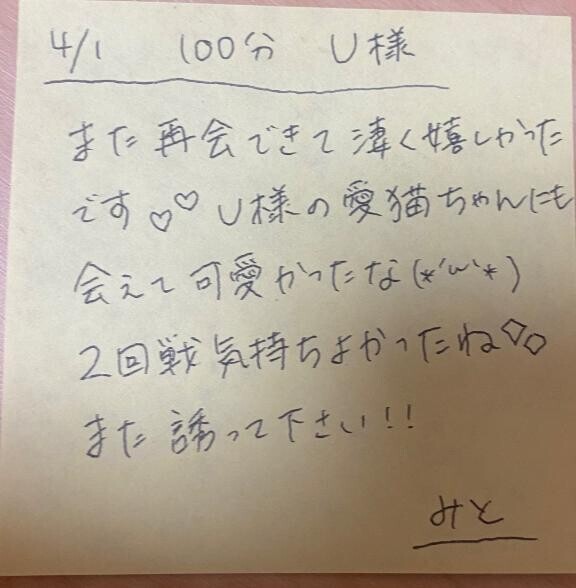 4/1 100分 U様
また再会できて凄く嬉しかった
です♡♡ U様の愛猫ちゃんにも
会えて可愛かったな(*'ω'*)
2回戦気持ちよかったね♡♡
また誘って下さい!!
みと